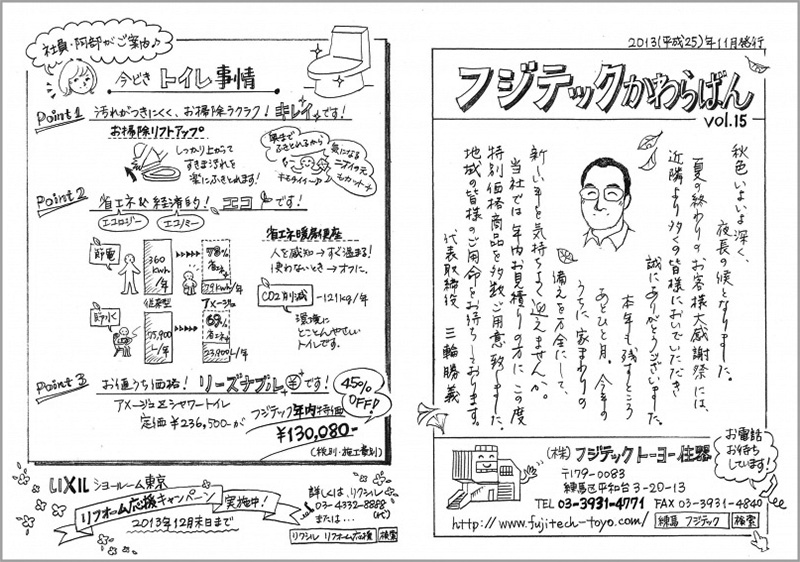 社員・阿部がご案内♪
今どきトイレ事情
Point1 汚れがつきにくく、お掃除ラクラク!キレイです!
お掃除リフトアップ
しっかり上がって
すきまの汚れを
楽にふきとれます!
奥まで
ふきとれるから
気になる
ニオイの元
もカット
Point2 省エネ&経済的!エコです!
エコロジー
エコノミー
節電
360
kwh
/年
78%
省エネ
79kwh/年
従来型
アメージュ
節水
75,900
L/年
69%
省エネ
23,900L/年
省エネ暖房便座
人を感知→すぐ温まる!
使わないとき→オフに。
CO2削減
-121kg/年
環境に
とことんやさしい
トイレです。
Point3 お値うち価格!リーズナブル¥です!
45%
OFF!
アメージュZシャワートイレ
定価¥236,500-が
フジテック年内特価
¥130,080-
(税別・施工費別)
LIXILショールーム東京
リフォーム応援キャンペーン実施中!
2013年12月末日まで
詳しくは、リクシル
03-4332-8888
(代)
または…
リクシル リフォーム応援 検索
2013(平成25)年11月発行
フジテックかわらばん
vol.15
秋色いよいよ深く、
夜長の候となりました。
夏の終わりのお客様大感謝祭には、
近隣より多くの皆様においでいただき
誠にありがとうございました。
本年も残すところ
あとひと月。今年の
うちに家まわりの
備えを万全にして、
新しい年を気持ちよく迎えませんか。
当社では年内お見積りの方に この度
特別価格商品を多数ご用意致しました。
地域の皆様のご用命をお待ちしております。
代表取締役 三輪勝義
(株)フジテックトーヨー住器
〒179-0083
練馬区平和台3-20-13
TEL 03-3931-4771 FAX 03-3931-4840
http://www.fujitech-toyo.com/
練馬 フジテック 検索
お電話
お待ち
しています!